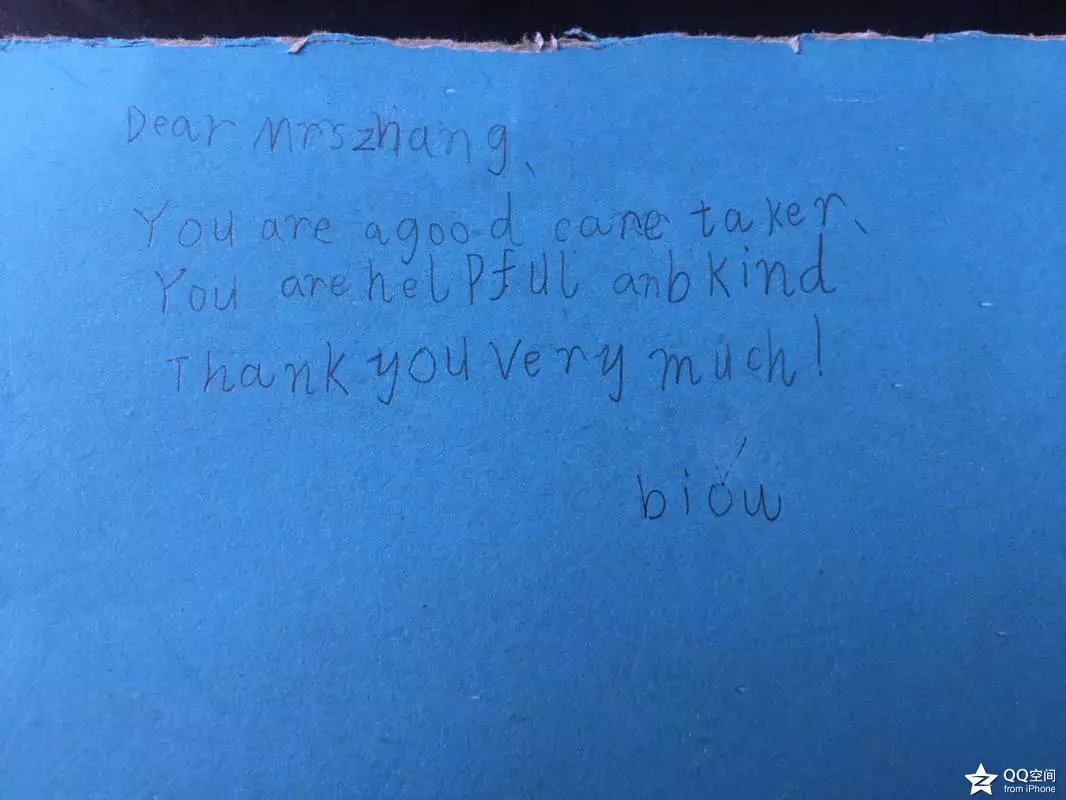 Dear Mrszhang、
You are agood care taker、
You are helpful anb kind
Thank you very much!
biow
QQ空间
from iPhone